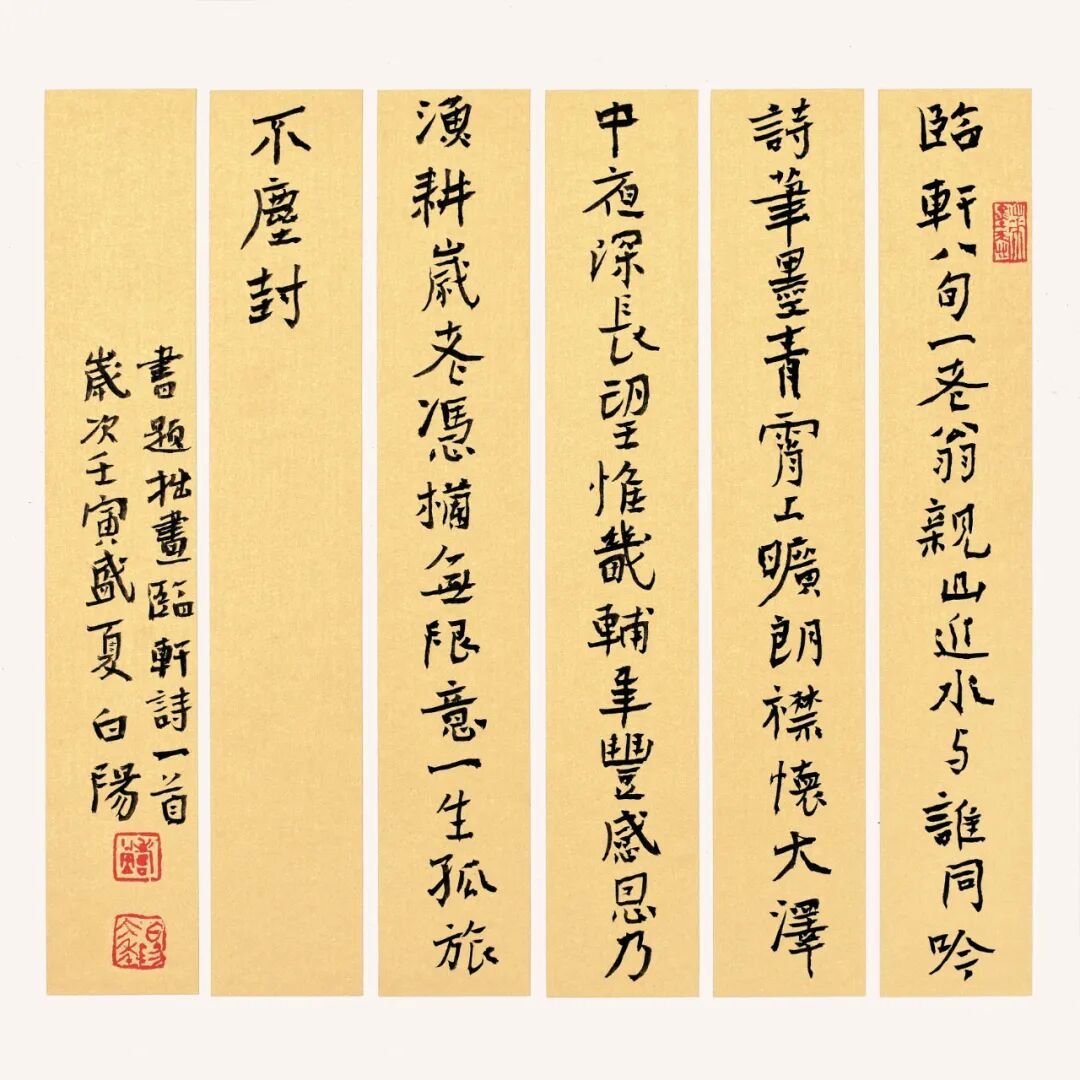 臨軒八句一老翁親山近水与誰同吟
詩筆墨青霄上曠朗襟懷大澤
中夜深長望惟畿輔年豐感恩乃
漁耕歲老憑欄無限意一生孤旅
不塵封
書題拙畫臨軒詩一首
歲次壬寅盛夏 白陽